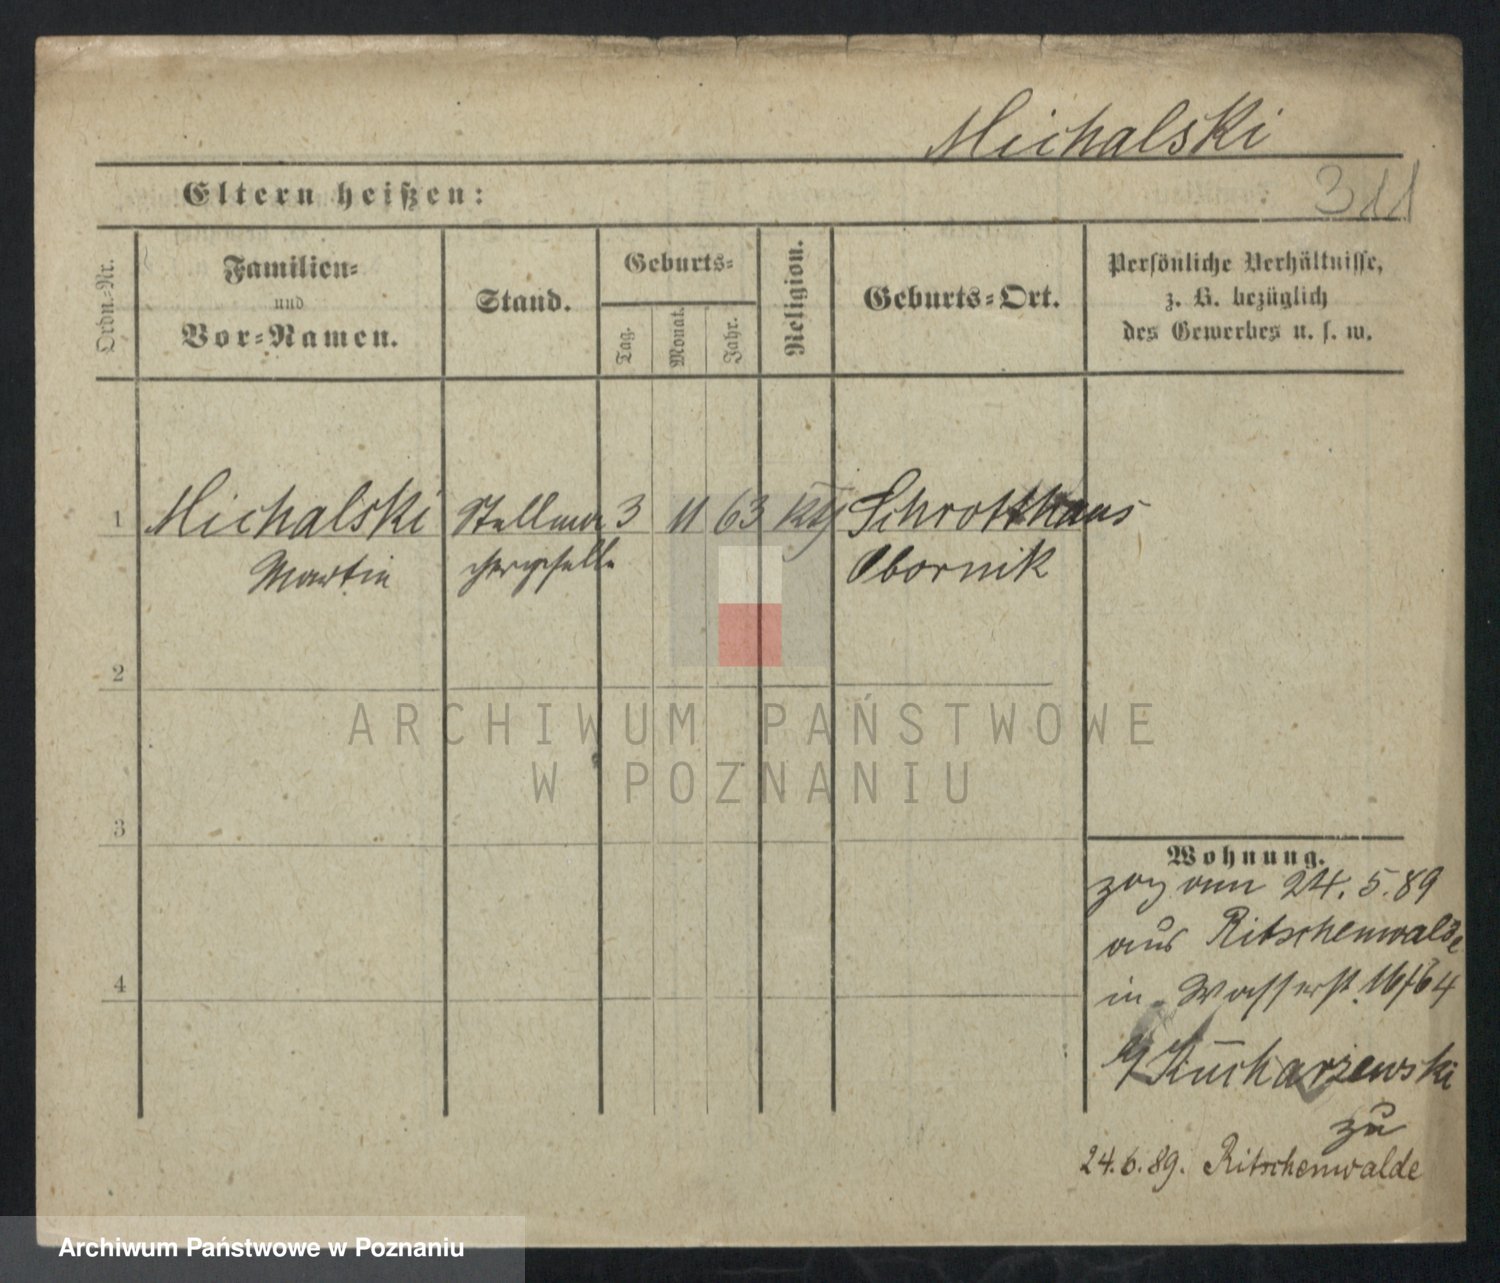 Michalski
Eltern heißen:
311
Ordn.-Nr.
Familien-
und
Vor-Namen.
Stand.
Geburts-
Tag.
Monat.
Jahr.
Religion.
Geburts-Ort.
Persönliche Verhältnisse,
z. B. bezüglich
des Gewerbes u. s. w.
1 Michalski Stellma 3 11 63 kth Schrotthaus
Martin chergeselle Obornik
2
ARCHIWUM PAŃSTWOWE
W POZNANIU
3
Wohnung.
zog am 24.5.89
aus Ritschenwalde
in Wasserst. 16/64
Kucharzewski
zu
24.6.89. Ritschenwalde
4
Archiwum Państwowe w Poznaniu